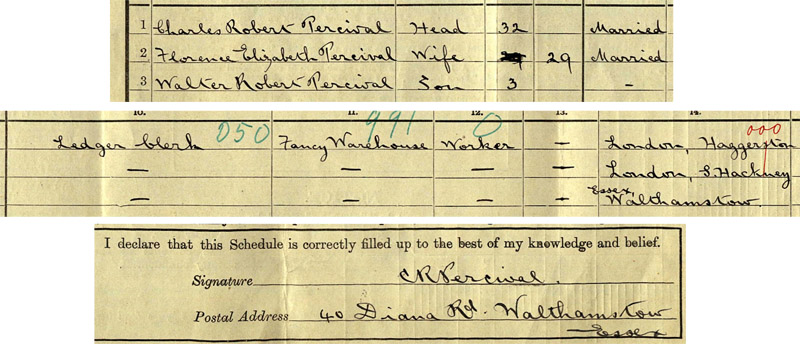 1 Charles Robert Percival Head 32 Married
2 Florence Elizabeth Percival Wife 29 Married
3 Walter Robert Percival Son 3 -
10. 11. 12. 13. 14.
Ledger Clerk 050 Fancy Warehouse 991 Worker 0 - London, Haggerston 000
- - - - London, S. Hackney
- - - - Essex, Walthamstow.
I declare that this Schedule is correctly filled up to the best of my knowledge and belief.
Signature CRPercival.
Postal Address 40 Diana Rd. Walthamstow
Essex